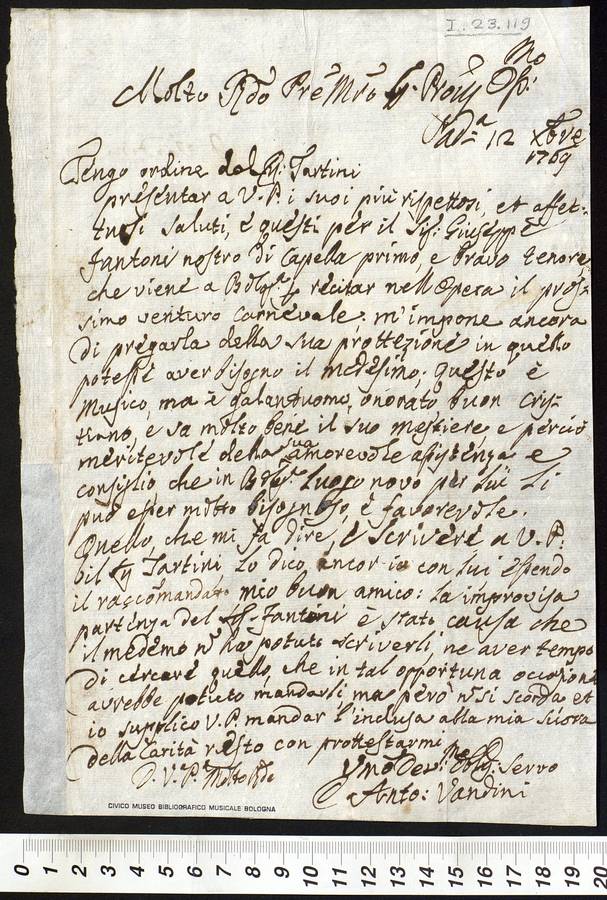 I. 23. 119
Molto Rdo Pre Mro Sr. Proñ Osso:
mo
Pad.a 12 Xbre
1769
Tengo ordine dal Sr: Tartini
presentar a V. P. i suoi più rispettosi, et affet-
tuosi saluti, e questi per il Sig: Giuseppe
Fantoni nostro di Capella primo, e bravo tenore
che viene a Bolga recitar nell Opera il pros-
simo venturo carnevale, m'impone ancora
di pregarla della sua prottezione in quello
potesse aver bisogno il medesimo; questo è
Musico, ma è galantuomo, onorato buon Cris-
tiano, e sa molto bene il suo mestiere e perciò
meritevole della sua amorevole assistenza e
consiglio, che in Bolga luogo novo per lui li
può esser molto bisognoso, e favorevole.
Quello, che mi fa dire, e scrivere a V. P.
il Sr Tartini Lo dico ancor io con lui essendo
il raccomandato mio buon amico: la improvisa
partenza del Sr. Fantoni è stato causa che
il medemo n ha potuto scriverli, ne aver tempo
di cercare quello, che in tal opportuna occasione
avrebbe potuto mandarli ma però n si scorda et
io supplico V. P. mandar l'inclusa alla mia suora
della Carità resto con prottestarmi
D. V. P. Molto Rda
Umo Devmo Oblig: Servo
Anto: Vandini
CIVICO MUSEO BIBLIOGRAFICO MUSICALE BOLOGNA
0 1 2 3 4 5 6 7 8 9 10 11 12 13 14 15 16 17 18 19 20